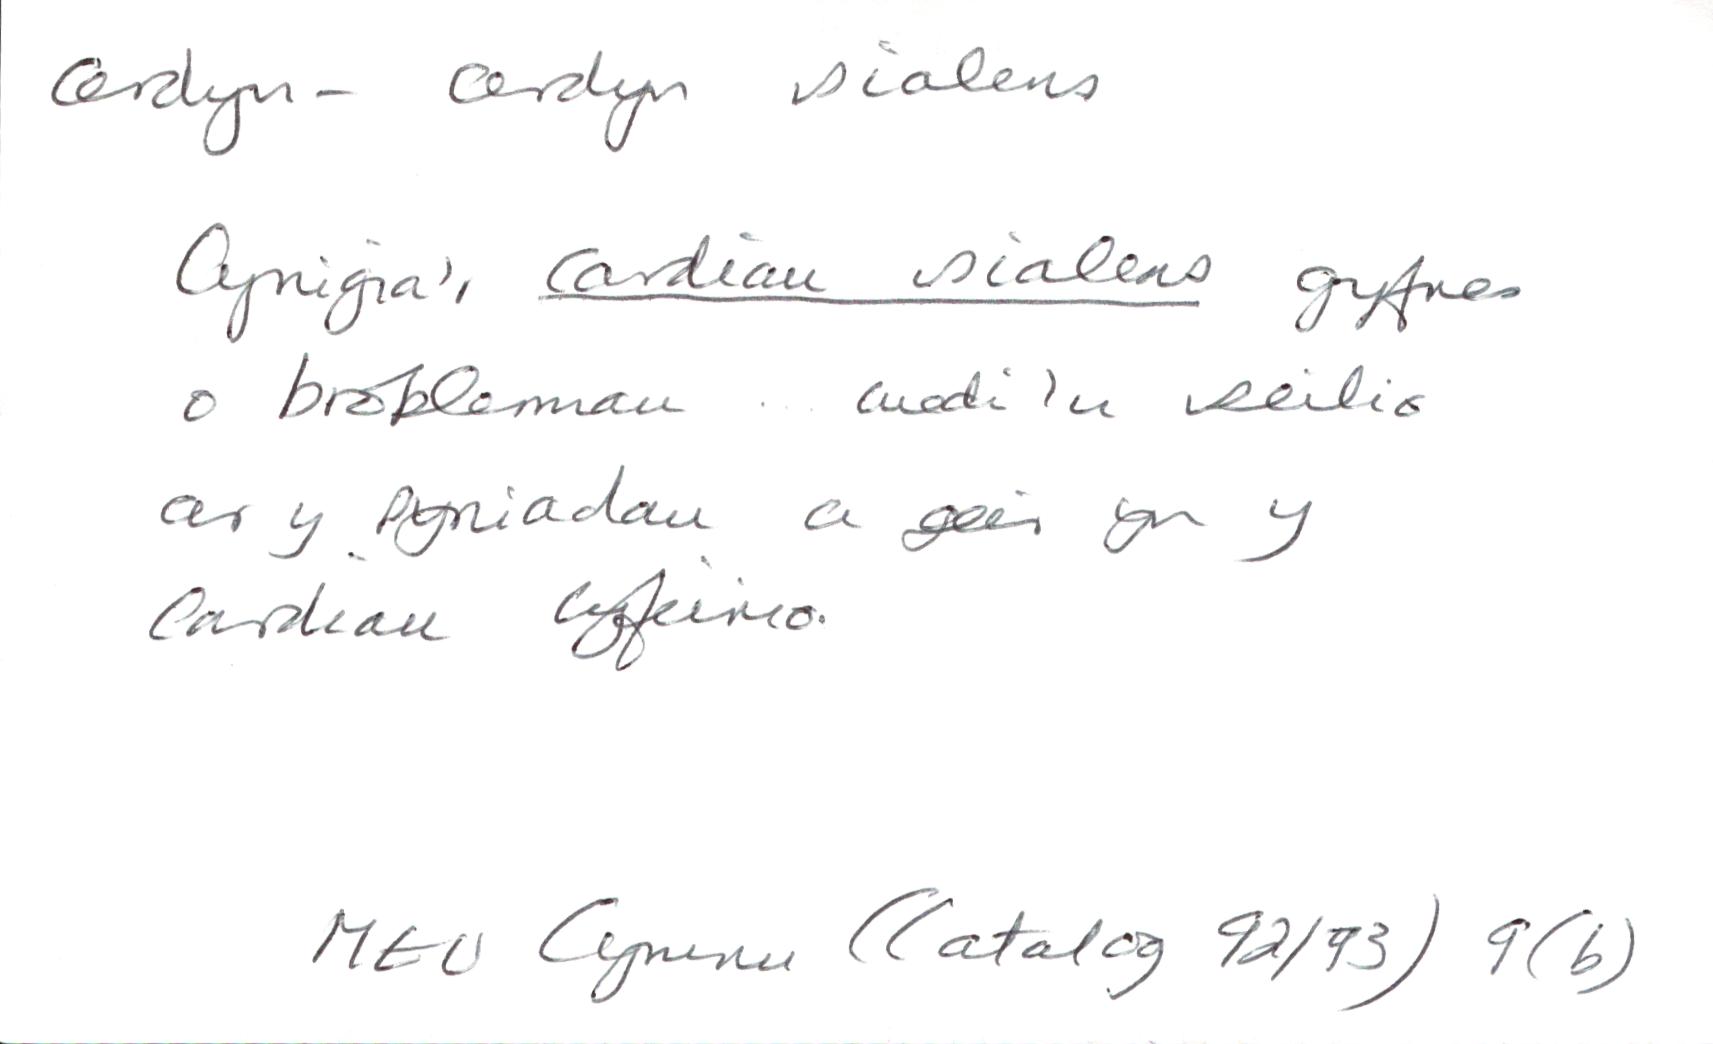 cerdyn - cerdyn sialens
Cynigia'r cardiau sialens gyfres
o broblemau ... wedi'u seilio
ar y syniadau a geir yn y
Cardiau cyfeirio.
MEU Cymru (Catalog 92/93) 9(b)